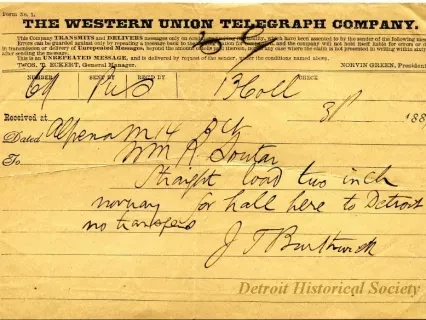 Form No. 1.
THE WESTERN UNION TELEGRAPH COMPANY.
This Company TRANSMITS and DELIVERS messages only on conditions limiting its liability, which have been assented to by the sender of the following message.
Errors can be guarded against only by repeating a message back to the sending station for comparison, and the company will not hold itself liable for errors or
in transmission or delivery of Unrepeated Messages, beyond the amount of tolls paid thereon, nor in any case where the claim is not presented in writing within sixty
after sending the message.
This is an UNREPEATED MESSAGE, and is delivered by request of the sender, under the conditions named above.
THOS. T. ECKERT, General Manager. NORVIN GREEN, President
NUMBER SENT BY REC'D BY CHECK
69 13 Coll
Received at 188
Dated Alpena M 14
To Wm R Soutar
Straight load two inch
norway for hall here to Detroit
no transfers
J T
Detroit Historical Society